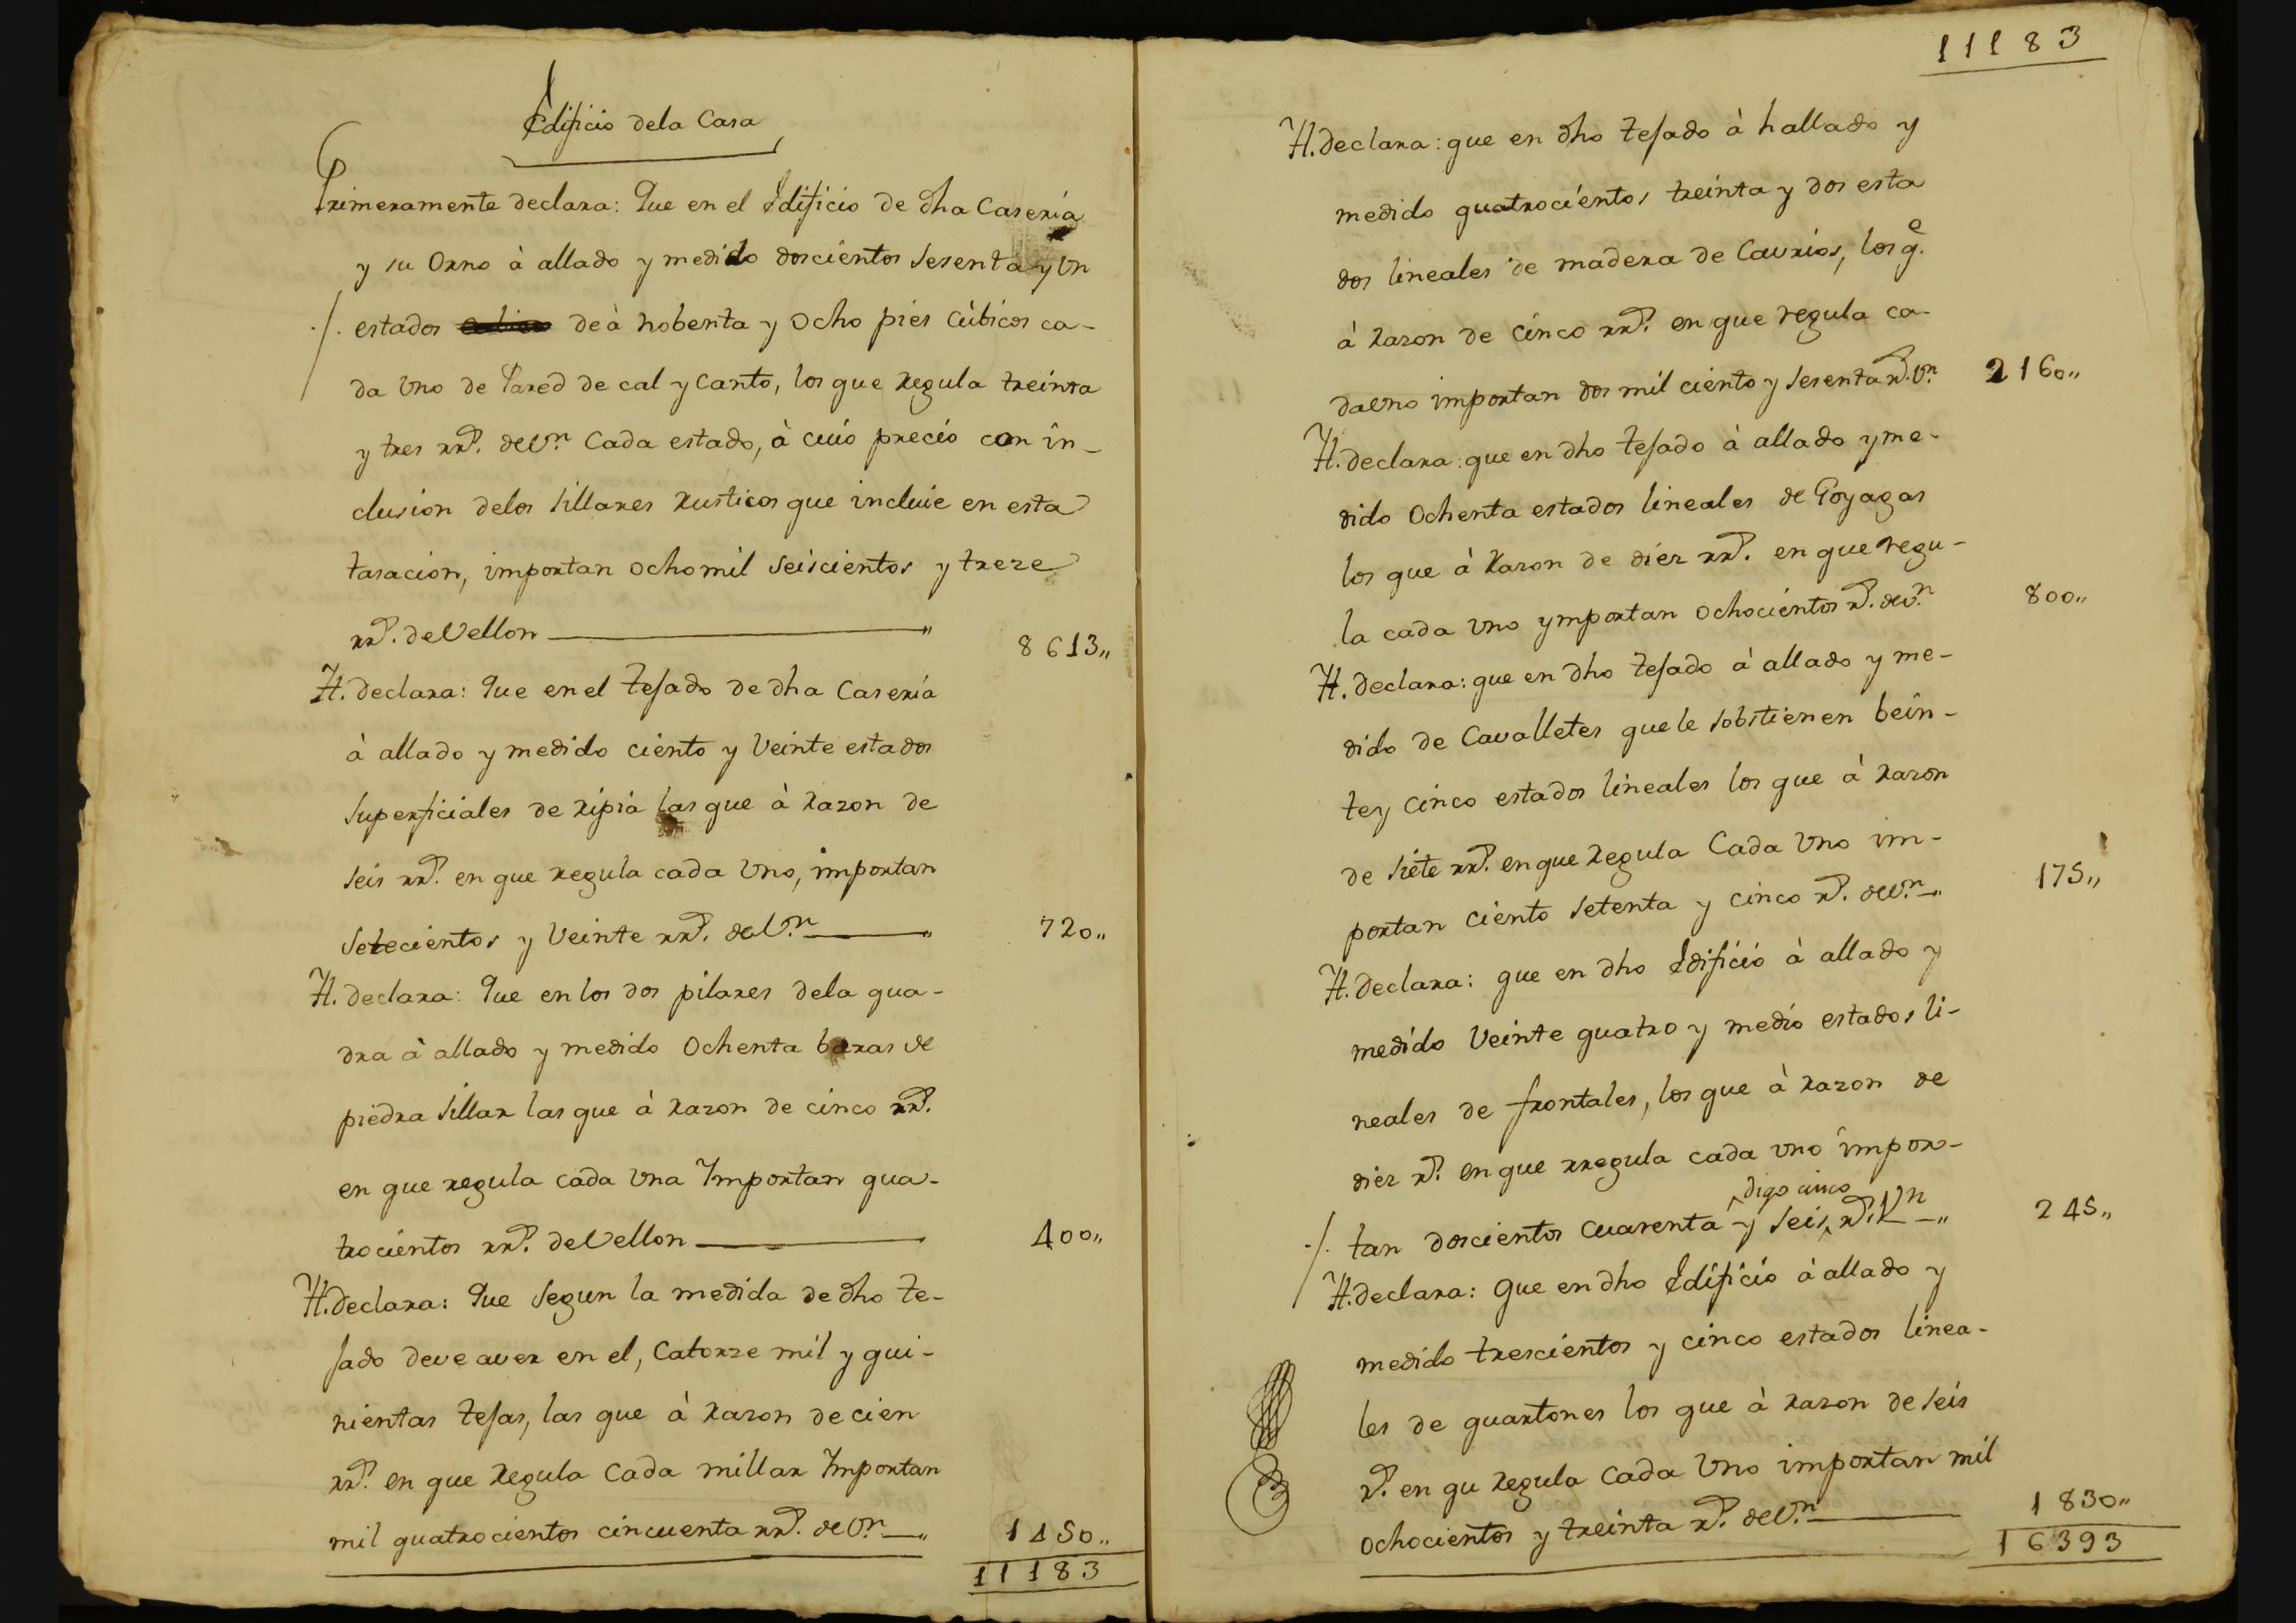 Edificio dela Casa
Primeramente declara: Que en el Edificio de dha Casería
y su Orno à allado y medido doscientos sesenta y Vn
./. estados deà nobenta y Ocho pies Cúbicos ca-
da Vno de Pared de cal y Canto, los que Regula treinta
y tres rr.s deV.n Cada estado, à cuio precio con in-
clusion delos Sillares Rusticos que incluie en esta
tasacion, importan ochomil seiscientos y treze
rr.s deVellon 8613,,
Yt. declara: Que en el tejado de dha Casería
à allado y medido ciento y Veinte estados
superficiales de Ripia las que à Razon de
seis rr.s en que regula cada Vno, importan
Setecientos y Veinte rr.s deV.n 720,,
Yt. declara: Que en los dos pilares dela qua-
dra à allado y medido Ochenta baras de
piedra Sillar las que à razon de cinco rr.s
en que regula cada Vna Importan qua-
trocientos rr.s deVellon 400,,
Yt. declara: Que Segun la medida de dho te-
jado deve aver en el, Catorze mil y qui-
nientas tejas, las que à Razon de cien
rr.s en que Regula Cada millar Importan
mil quatrocientos cincuenta rr.s deV.n 1450,,
11183
11183
Yt. declara: que en dho tejado à hallado y
medido quatrocientos treinta y dos esta
dos lineales de madera de Cavrios, los q.e
à Razon de cinco rr.s en que regula ca-
daVno importan dos mil ciento y sesenta r.s V.n 2160,,
Yt. declara: que en dho tejado à allado y me-
dido Ochenta estados lineales de Goyagas
los que à Razon de diez rr.s en que regu-
la cada Vno ymportan ochocientos r.s deV.n 800,,
Yt. declara: que en dho tejado à allado y me-
dido de Cavalletes que le sobstienen bein-
tey Cinco estados lineales los que à razon
de Siete rr.s en que Regula Cada Vno im-
portan ciento setenta y cinco r.s deV.n 175,,
Yt. declara: que en dho Edificio à allado y
medido Veinte quatro y medio estados li-
neales de frontales, los que à razon de
diez r.s en que rregula cada Vno impor-
digo cinco
./. tan doscientos cuarenta y seis r.s V.n 245,,
Yt. declara: Que en dho Edificio à allado y
medido trescientos y cinco estados linea-
les de quartones los que à razon de seis
r.s en qu Regula Cada Vno importan mil
ochocientos y treinta r.s deV.n 1830,,
16393